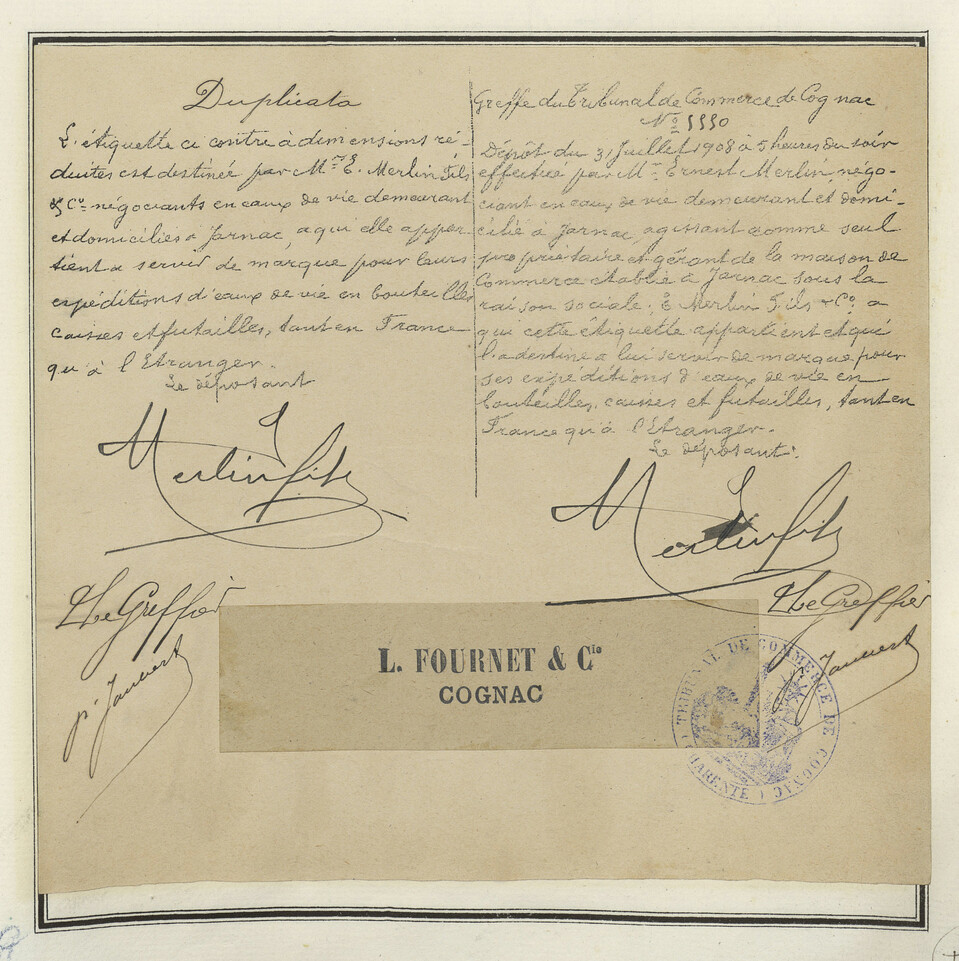 Duplicata
L'étiquette ci contre à dimensions ré-
duites est destinée par Mrs E. Merlin Fils
& Co. négociants en eaux de vie demeurant
et domiciliés à Jarnac, a qui elle appar-
tient a servir de marque pour leurs
expéditions d'eaux de vie en bouteilles
caisses et futailles, tant en France
qu'à l'Etranger.
Le déposant
Merlin fils
Le Greffier
pr Jaubert
Greffe du Tribunal de Commerce de Cognac
No 5550
Dépôt du 31 Juillet 1908 à 5 heures du soir
effectué par Mr Ernest Merlin, négo-
ciant en eaux de vie demeurant et domi-
cilié à Jarnac, agissant comme seul
propriétaire et gérant de la maison de
Commerce établie à Jarnac sous la
raison sociale: E Merlin Fils & Co. a
qui cette étiquette appartient et qui
l'a destine a lui servir de marque pour
ses expéditions d'eaux de vie en
bouteilles, caisses et futailles, tant en
France qu'à l'Etranger.
Le déposant:
Merlin fils
Le Greffier
Jaubert
L. FOURNET & Cie
COGNAC
TRIBUNAL DE COMMERCE DE COGNAC
(CHARENTE)